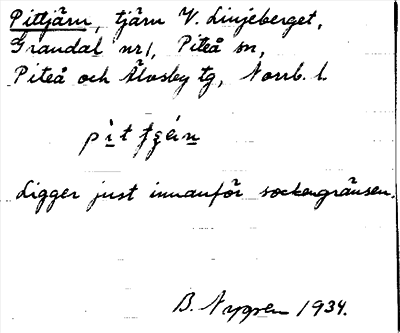 Pittjärn, tjärn V. Linjeberget,
Grandal nr 1, Piteå sn,
Piteå och Älvsby tg, Norrb. l.
Ligger just innanför sockengränsen.
B. Nygren 1934.